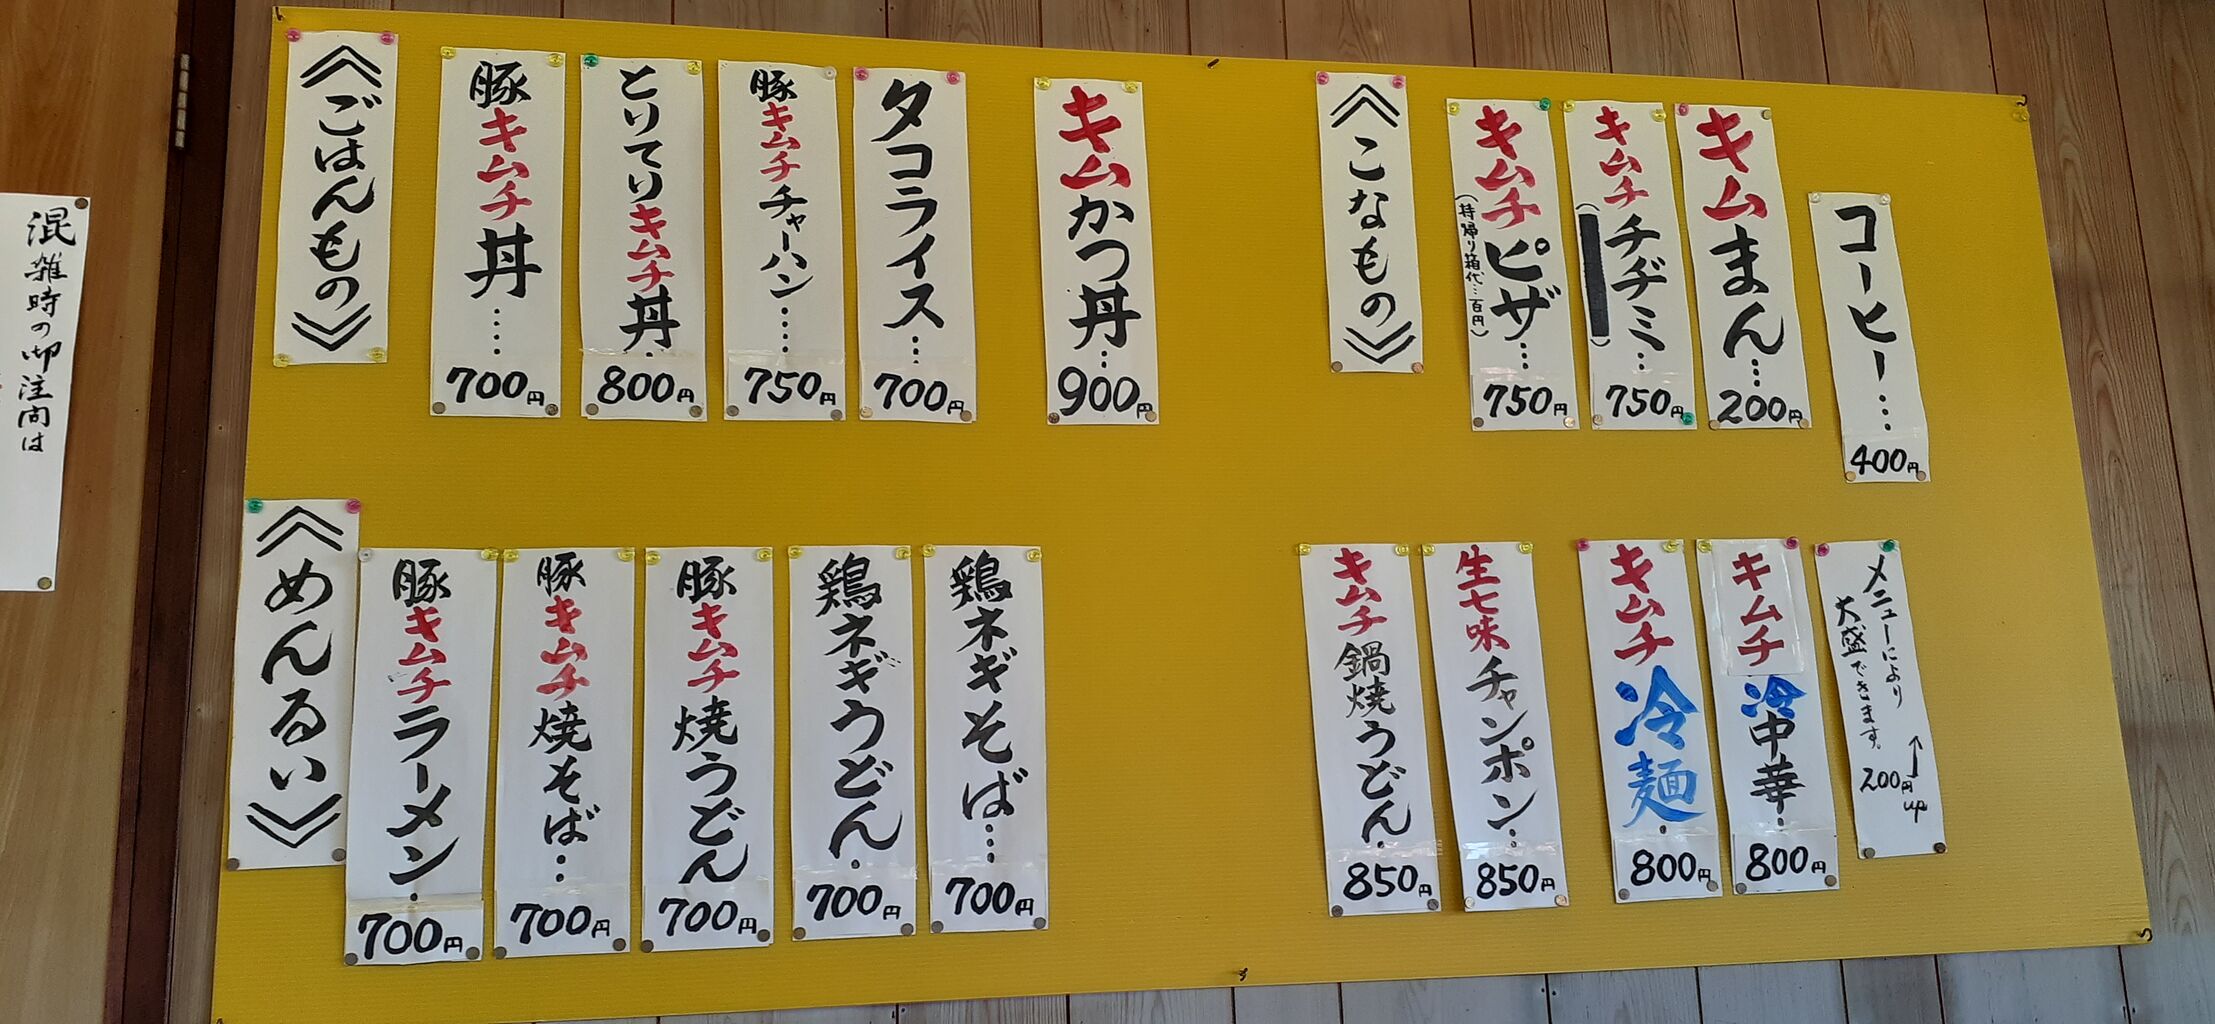 混雑時の御注文は
《ごはんもの》
豚キムチ丼……700円
とりてりキムチ丼…800円
豚キムチチャーハン……750円
タコライス…700円
キムかつ丼…900円
《こなもの》
キムチピザ…750円
(持帰り箱代…百円)
キムチチヂミ…750円
キムまん…200円
コーヒー…400円
《めんるい》
豚キムチラーメン・700円
豚キムチ焼そば…700円
豚キムチ焼うどん700円
鶏ネギうどん・700円
鶏ネギそば…700円
キムチ鍋焼うどん・850円
生七味チャンポン…850円
キムチ冷麺・800円
キムチ冷中華・800円
メニューにより
大盛できます。
200円up